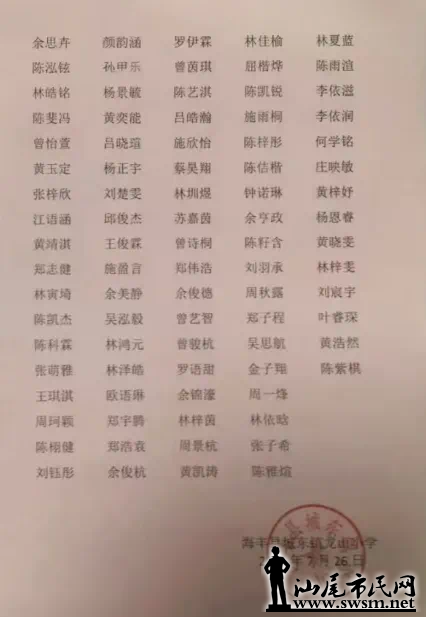 余思卉 颜韵涵 罗伊霖 林佳榆 林夏蓝
陈泓铉 孙甲乐 曾茵琪 屈楷烨 陈雨渲
林皓铭 杨景毓 陈艺淇 陈凯锐 李依滋
陈斐冯 黄奕能 吕皓瀚 施雨桐 李依润
曾怡萱 吕晓瑄 施欣怡 陈梓彤 何学铭
黄玉定 杨正宇 蔡昊翔 陈佶楷 庄映敏
张梓欣 刘楚雯 林圳煜 钟诺琳 黄梓妤
江语涵 邱俊杰 苏嘉茵 余亨政 杨恩睿
黄靖淇 王俊霖 曾诗桐 陈籽含 黄晓雯
郑志健 施盈言 郑伟浩 刘羽承 林梓雯
林寅埼 余美静 余俊德 周秋露 刘宸宇
陈凯杰 吴泓毅 曾艺智 郑子程 叶睿琛
陈科霖 林鸿元 曾骏杭 吴思航 黄浩然
张萌雅 林泽皓 罗语甜 金子翔 陈紫棋
王琪淇 欧语琳 余锦濠 周一烽
周珂颖 郑宇腾 林梓茵 林依晗
陈栩健 郑浩袁 周景杭 张子希
刘钰彤 余俊杭 黄凯涛 陈雅煊
海丰县城东镇龙山小学
年7月26日
汕尾市民网
www.swsm.net